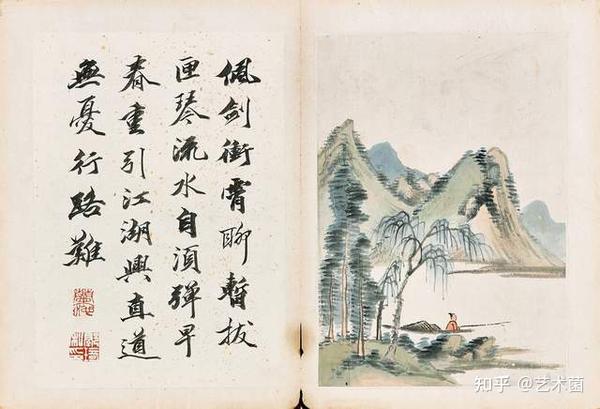 佩劍衝霄聊暫拔
匣琴流水自須彈早
春重引江湖興直道
無憂行路難
知乎 @艺术菌